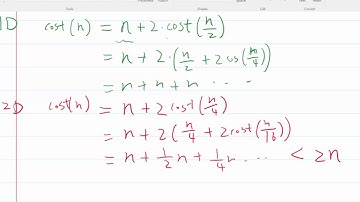 1D cost(n) = n + 2 · cost(n/2)
= n + 2 · (n/2 + 2 cos(n/4)
= n + n + n ...
2D cost(n) = n + 2 cost(n/4)
= n + 2 (n/4 + 2 cost(n/16))
= n + 1/2 n + 1/4 n ... < 2n